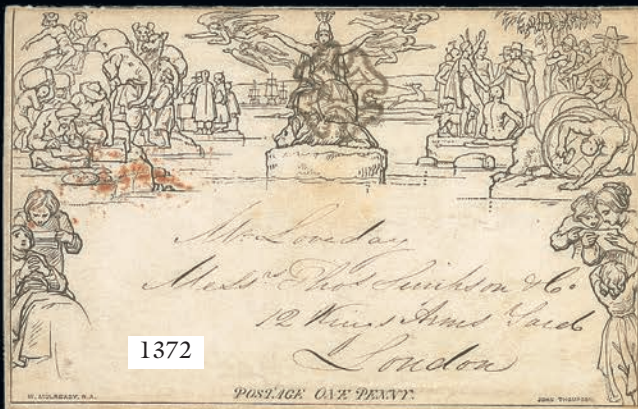 Mr Loveday
Mess.rs Thos Simpson & Co
12 Kings Arms Yard
London
1372
W. MULREADY, R.A.
POSTAGE ONE PENNY.
JOHN THOMPSON.